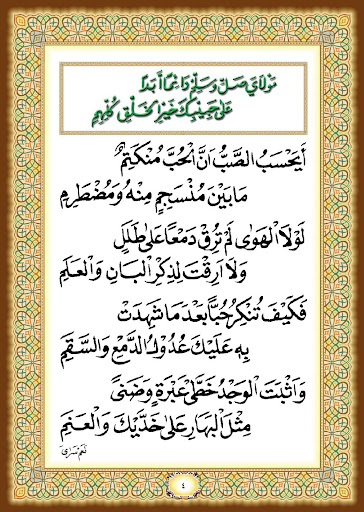 مَوْلَايَ صَلِّ وَسَلِّمْ دَائِمًا أَبَدًا
عَلَى حَبِيبِكَ خَيْرِ الْخَلْقِ كُلِّهِمِ
أَيَحْسَبُ الصَّبُّ اَنَّ الْحُبَّ مُنْكَتِمٌ
مَا بَيْنَ مُنْسَجِمٍ مِنْهُ وَمُضْطَرِمٍ
لَوْلَا الْهَوٰى لَمْ تُرِقْ دَمْعًا عَلٰى طَلَلٍ
وَلَا اَرِقْتَ لِذِكْرِ الْبَانِ وَالْعَلَمِ
فَكَيْفَ تُنْكِرُ حُبًّا بَعْدَ مَا شَهِدَتْ
بِهِ عَلَيْكَ عُدُولُ الدَّمْعِ وَالسَّقَمِ
وَاَثْبَتَ الْوَجْدُ خَطَّيْ عَبْرَةٍ وَضَنًى
مِثْلَ الْبَهَارِ عَلٰى خَدَّيْكَ وَالْعَنَمِ
٤